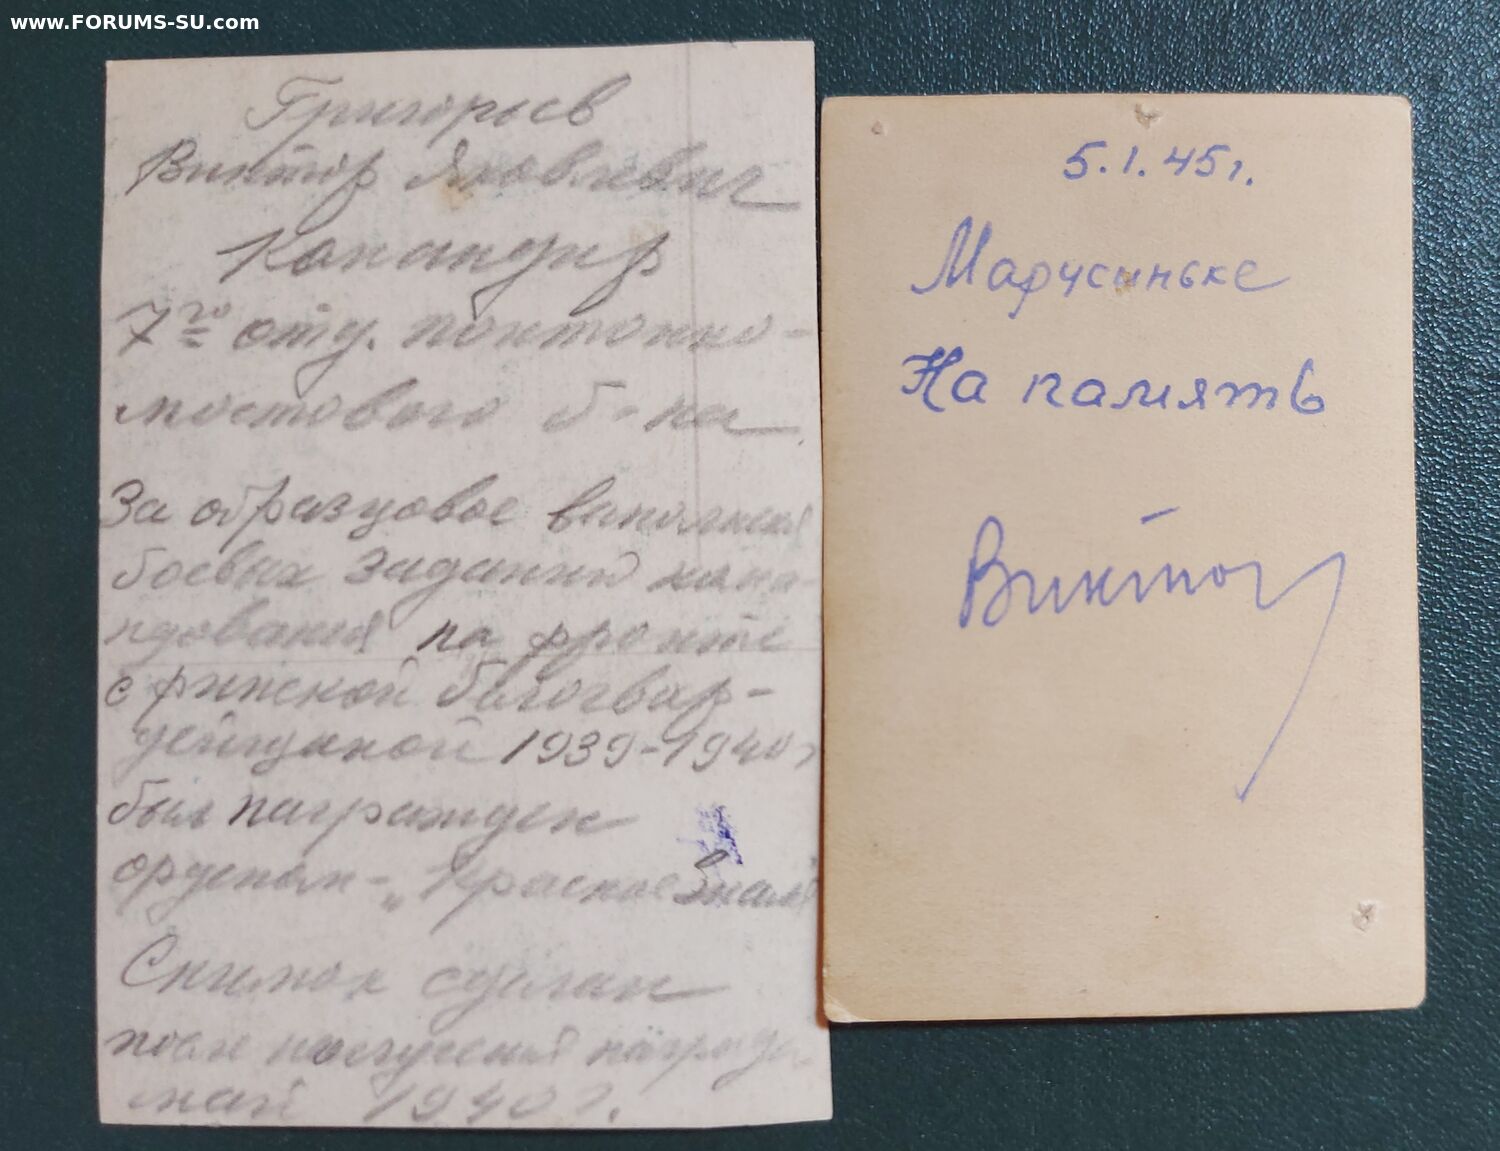 www.FORUMS-SU.com
Григорьев
Виктор Яковлевич
Командир
7го отд. понтонно-
мостового б-на
За образцовое выполнения
боевых заданий кома-
ндования на фронте
с финской белогвар-
дейщиной 1939-1940г
был награжден
орденом - „Красное Знамя
Снимок сделан
после получения награды
май 1940 г.
5.1.45г.
Марусиньке
На память
Виктор